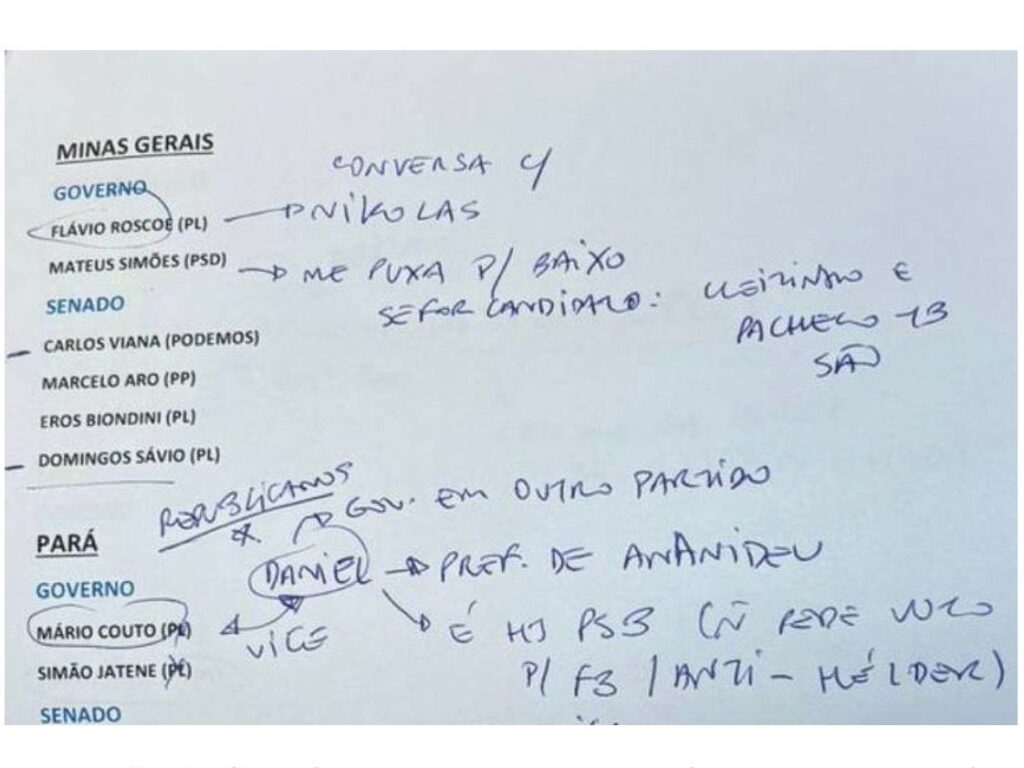 MINAS GERAIS
CONVERSA C/
GOVERNO
FLÁVIO ROSCOE (PL)
NIKOLAS
MATEUS SIMÕES (PSD)
ME PUXA P/ BAIXO
SE FOR CANDIDATO: CLEITINHO E
PACHECO 13
SÃO
SENADO
CARLOS VIANA (PODEMOS)
MARCELO ARO (PP)
EROS BIONDINI (PL)
DOMINGOS SÁVIO (PL)
REPUBLICANOS
GOV. EM OUTRO PARTIDO
PARÁ
GOVERNO
DANIEL PREF. DE ANANIDEU
MÁRIO COUTO (PL)
VICE
É HJ PSB (Ñ PEDE VOTO
P/ FB / ANTI - HÉLDER)
SIMÃO JATENE (PL)
SENADO